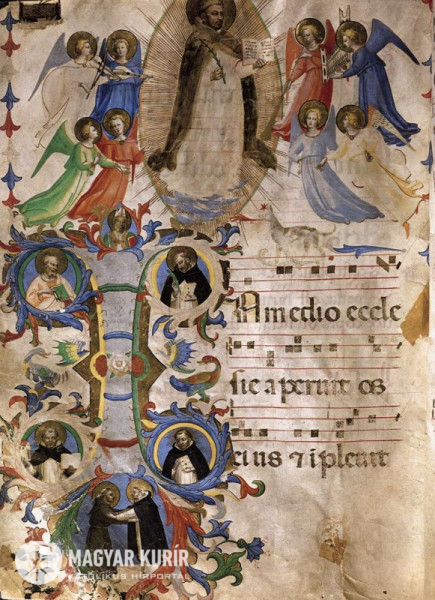 IN medio eccle
sie aperuit os
eius ⁊ ipleuit
MAGYAR KURÍR
KATOLIKUS HÍRPORTÁL